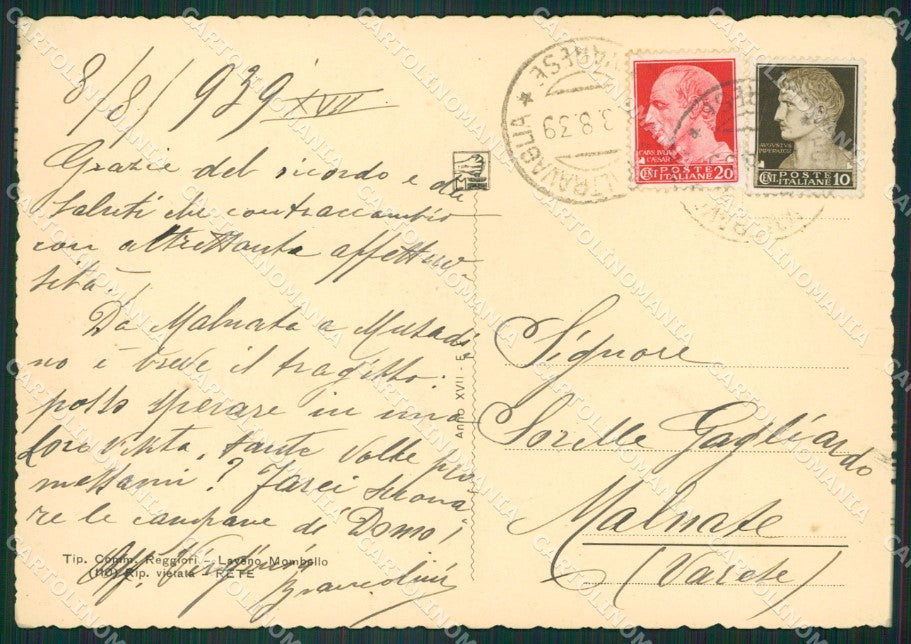 8/8/939 XVII
Grazie del ricordo e dei
saluti che contraccambio
con altrettanta affettuo
sità.
Da Malnate a Mustadi
no è breve il tragitto:
posso sperare in una
loro visita, tante volte pro
messami? Farei suona
re le campane di Domo!
Tip. Comm. Reggiori - Laveno Mombello
(110) Rip. vietata - RETE
Anno XVII - E.
ALTRAVAGLIA
VARESE
3.8.39
CAIUS IVLIVS
CAESAR
CENT. POSTE
ITALIANE 20
AVGVSTVS
IMPERATOR
CENT. POSTE
ITALIANE 10
Signore
Sorelle Gagliardo
Malnate
(Varese)
CARTOLINOMANIA